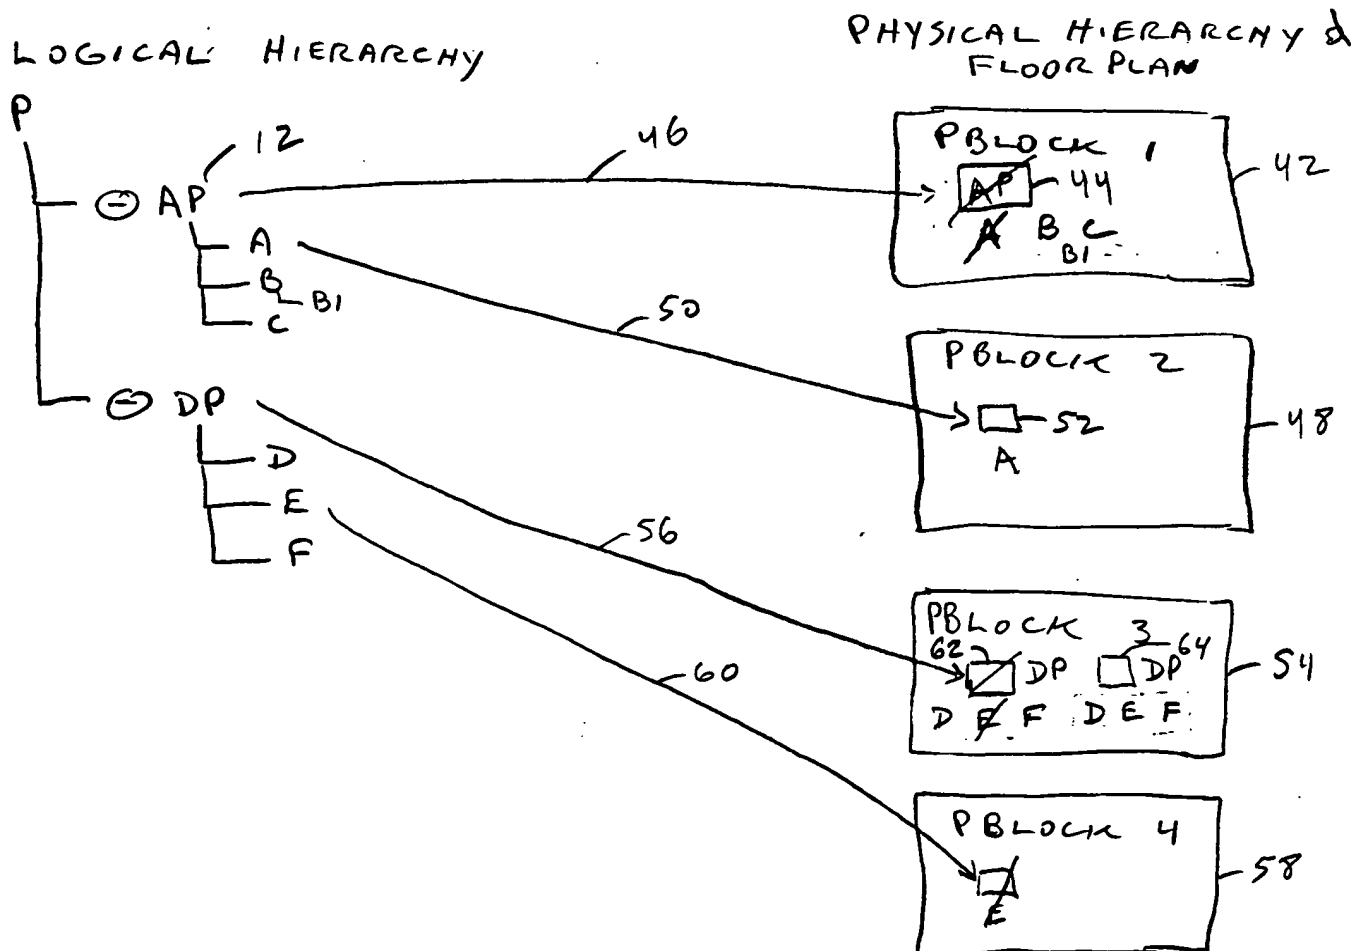 LOGICAL HIERARCHY
PHYSICAL HIERARCHY &
FLOOR PLAN
P
12
AP
A
B
B1
C
DP
D
E
F
46
50
56
60
PBLOCK 1
AP
44
A B C
B1
42
PBLOCK 2
52
A
48
PBLOCK 3
62 DP DP 64
D E F D E F
54
PBLOCK 4
E
58